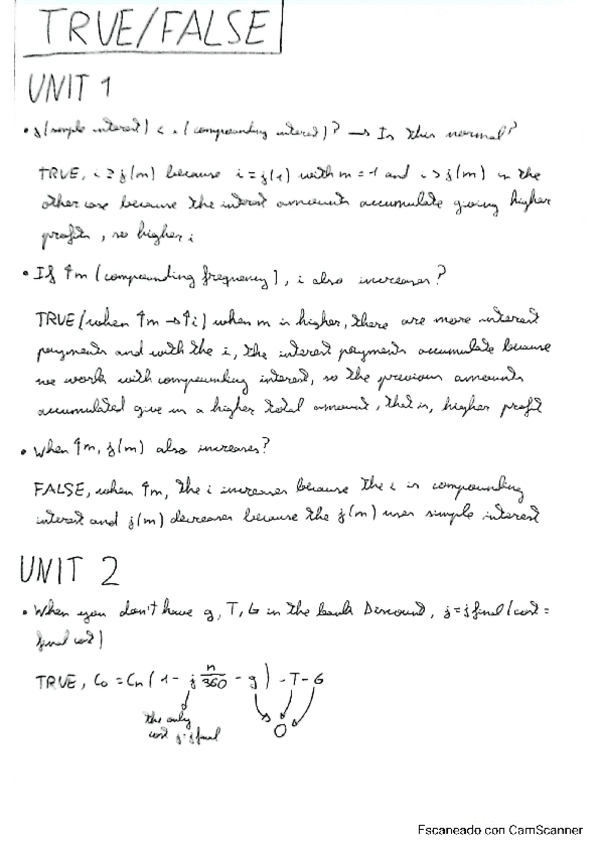 TRUE/FALSE
UNIT 1
• j (simple interest) < i (compounding interest)? → Is this normal?
TRUE, i ≥ j(m) because i = j(1) with m = 1 and i > j(m) in the
other case because the interest amounts accumulate giving higher
profit, so higher i
• If ↑m (compounding frequency), i also increases?
TRUE (when ↑m → ↑i) when m is higher, there are more interest
payments and with the i, the interest payments accumulate because
we work with compounding interest, so the previous amounts
accumulated give us a higher total amount, that is, higher profit
• When ↑m, j(m) also increases?
FALSE, when ↑m, the i increases because the i is compounding
interest and j(m) decreases because the j(m) uses simple interest
UNIT 2
• When you don't have g, T, G in the bank Discount, j = j final (cost =
final cost)
TRUE, Co = Cn (1 - j n/360 - g) - T - G
the only
cost j = j final
0
Escaneado con CamScanner